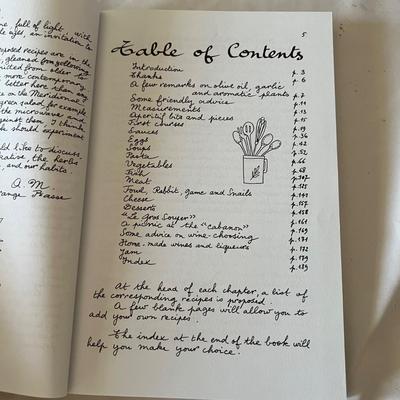 me, full of light, with
eyes, an invitation to
posed recipes are in the
gleaned from yellowing
older to
more contemporary
better here when I
on the Meridional
green salad for example
the microwave and
against them. I think
should experiment
like to discuss
the herbs
and our habits
A.M.
5
Table of Contents
Introduction p.3
Thanks p.6
A few remarks on olive oil, garlic
and aromatic plants p.7
Some friendly advice p.11
Measurements p.13
Aperitif bits and pieces p.15
First courses p.19
Sauces p.34
Eggs p.42
Soups p.52
Pasta p.66
Vegetables p.68
Fish p.107
Meat
Fowl, Rabbit, game and Snails
Cheese
Desserts p.158
"Le Gros Souper" p.161
A picnic at the "cabanon" p.169
Some advice on wine-choosing p.171
Home-made wines and liqueurs p.172
Jam p.179
Index p.189
At the head of each chapter, a list of
the corresponding recipes is proposed.
A few blank pages will allow you to
add your own recipes.
The index at the end of the book will
help you make your choice.